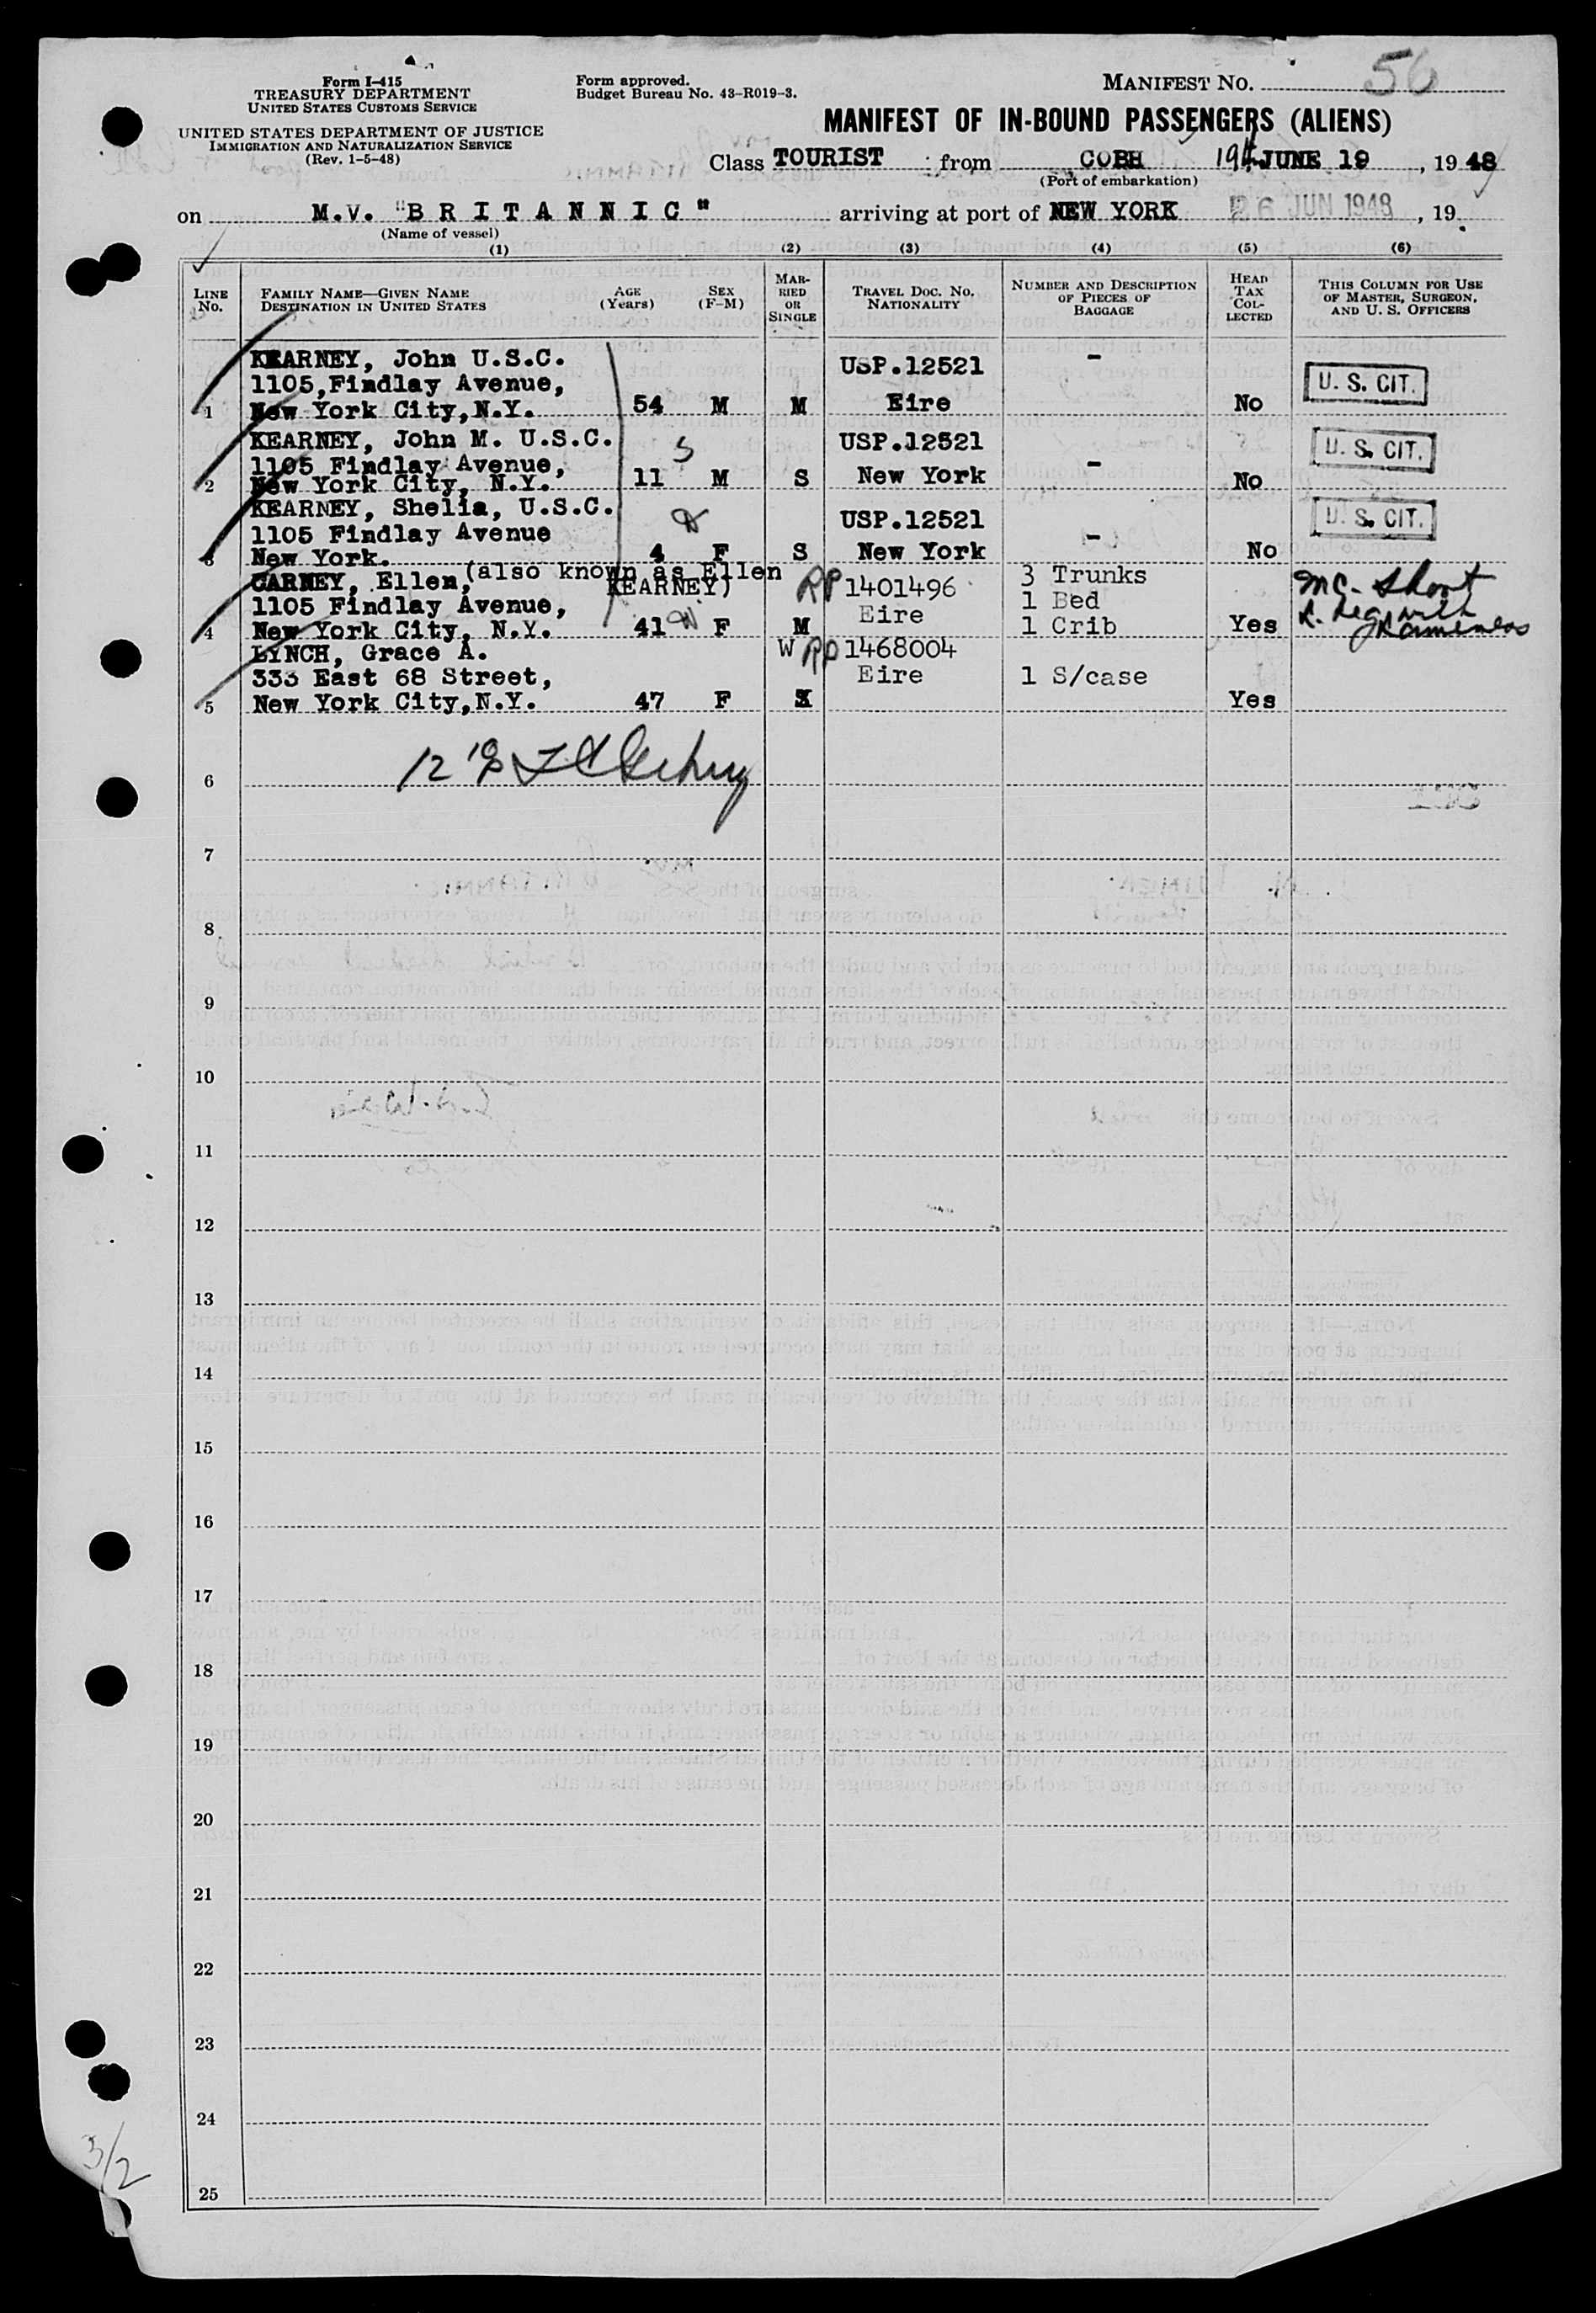 Form I-415
TREASURY DEPARTMENT
UNITED STATES CUSTOMS SERVICE
UNITED STATES DEPARTMENT OF JUSTICE
IMMIGRATION AND NATURALIZATION SERVICE
(Rev. 1-5-48)
Form approved.
Budget Bureau No. 43-R019-3.
MANIFEST NO. 56
MANIFEST OF IN-BOUND PASSENGERS (ALIENS)
Class TOURIST from COBH 19th JUNE 19, 1948
(Port of embarkation)
on M.V. "BRITANNIC" arriving at port of NEW YORK 26 JUN 1948, 19
(Name of vessel)
(1) (2) (3) (4) (5) (6)
LINE No.
FAMILY NAME—GIVEN NAME
DESTINATION IN UNITED STATES
AGE (Years)
SEX (F-M)
MARRIED OR SINGLE
TRAVEL DOC. NO. NATIONALITY
NUMBER AND DESCRIPTION OF PIECES OF BAGGAGE
HEAD TAX COLLECTED
THIS COLUMN FOR USE OF MASTER, SURGEON, AND U. S. OFFICERS
KEARNEY, John U.S.C. USP.12521 -
1105,Findlay Avenue, U. S. CIT.
1 New York City,N.Y. 54 M M Eire No
KEARNEY, John M. U.S.C. S USP.12521
1105 Findlay Avenue, - U. S. CIT.
2 New York City, N.Y. 11 M S New York No
KEARNEY, Shelia, U.S.C. USP.12521 U. S. CIT.
1105 Findlay Avenue -
3 New York. 4 F S New York No
CARNEY, Ellen, (also known as Ellen KEARNEY) RP 1401496 3 Trunks
1105 Findlay Avenue, Eire 1 Bed
4 New York City, N.Y. 41 F M 1 Crib Yes
LYNCH, Grace A. W RP 1468004
333 East 68 Street, Eire 1 S/case
5 New York City,N.Y. 47 F Yes
6
7
8
9
10
11
12
13
14
15
16
17
18
19
20
21
22
23
24
25
3/2